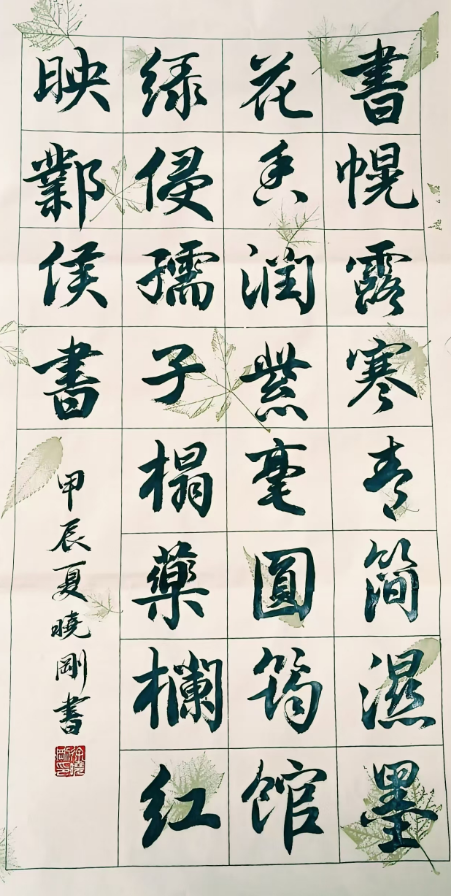 書幌露寒青簡濕墨
花香潤紫毫圓筠館
绿侵孺子榻藥欄红
映鄴侯書
甲辰夏曉剛書